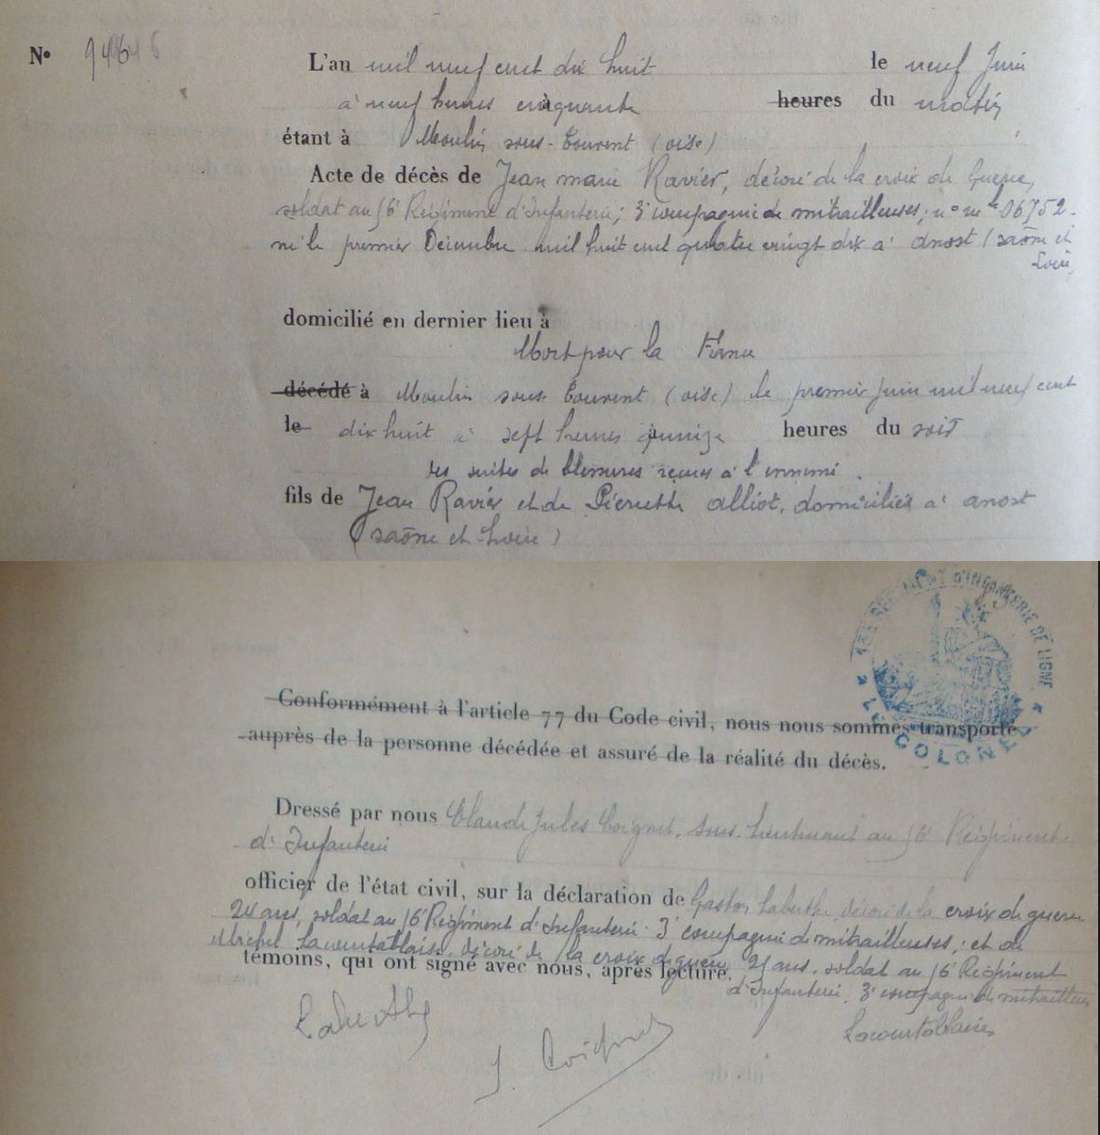 N° 946
L'an mil neuf cent dix huit le neuf Juin
à neuf heures cinquante heures du matin
étant à Moulin sous-Touvent (oise)
Acte de décès de Jean marie Ravier, décoré de la croix de Guerre,
soldat au 16e Régiment d'Infanterie; 3e compagnie de mitrailleuses; n° mle 06752.
né le premier Décembre mil huit cent quatre vingt dix à anost (saône et
Loire)
domicilié en dernier lieu à
Mort pour la France
décédé à Moulin sous Touvent (oise) le premier juin mil neuf cent
le dix huit à sept heures quinze heures du soir
des suites de blessures reçues à l'ennemi.
fils de Jean Ravier et de Pierrette alliot, domiciliés à anost
(saône et-Loire)
REGIMENT D'INFANTERIE DE LIGNE
LE COLONEL
Conformément à l'article 77 du Code civil, nous nous sommes transporté
auprès de la personne décédée et assuré de la réalité du décès.
Dressé par nous Claude Jules Coignet, sous-lieutenant au 16e Régiment
d'Infanterie
officier de l'état civil, sur la déclaration de Gaston Laberthe, décoré de la croix de guerre
24 ans, soldat au 16e Régiment d'Infanterie 3e compagnie de mitrailleuses; et de
Michel Lacourtablaise, décoré de la croix de guerre 21 ans, soldat au 16e Régiment
témoins, qui ont signé avec nous, après lecture.
d'Infanterie, 3e compagnie de mitrailleuses
Laberthe
J. Coignet
Lacourtablaise